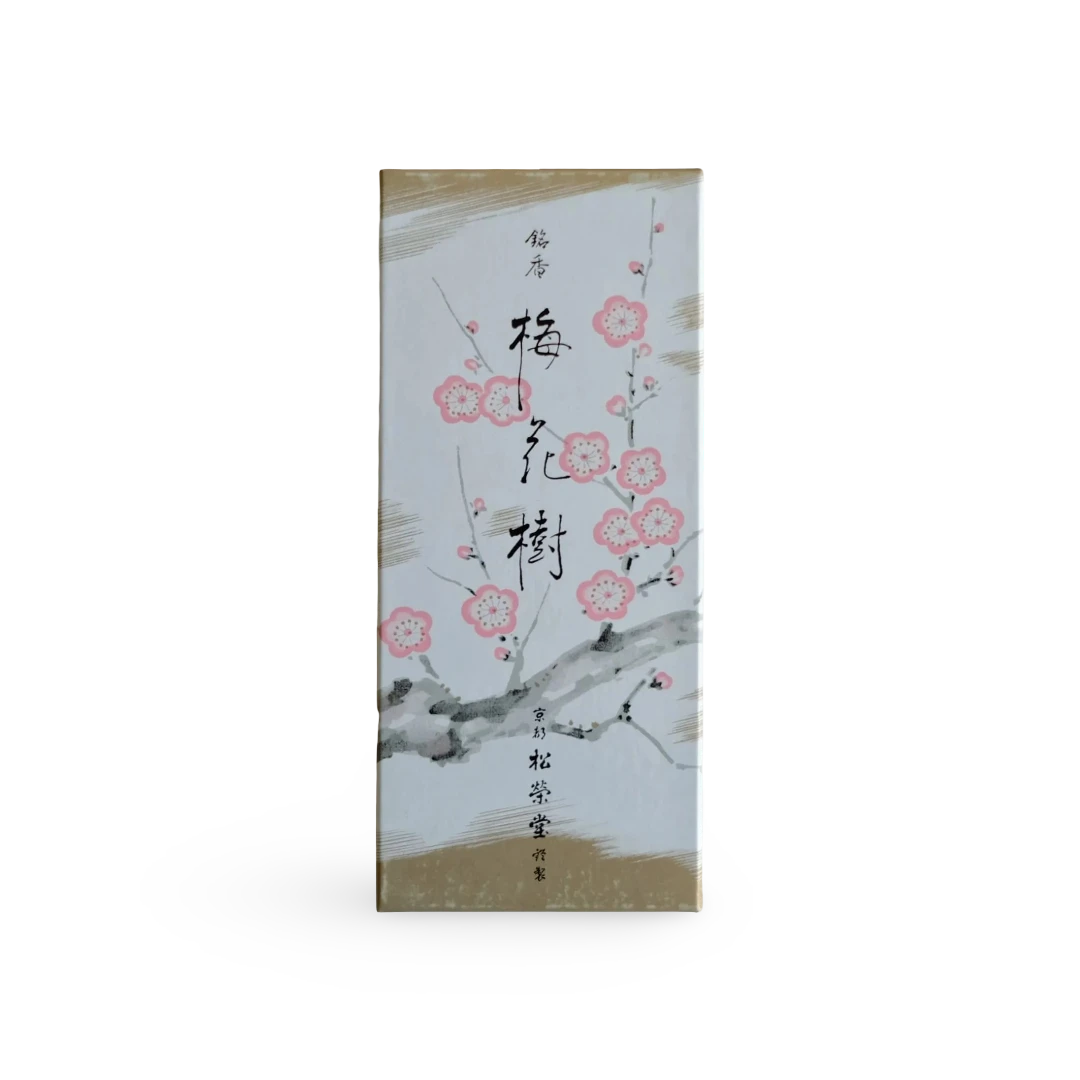 銘香
梅花樹
京都
松榮堂
謹製